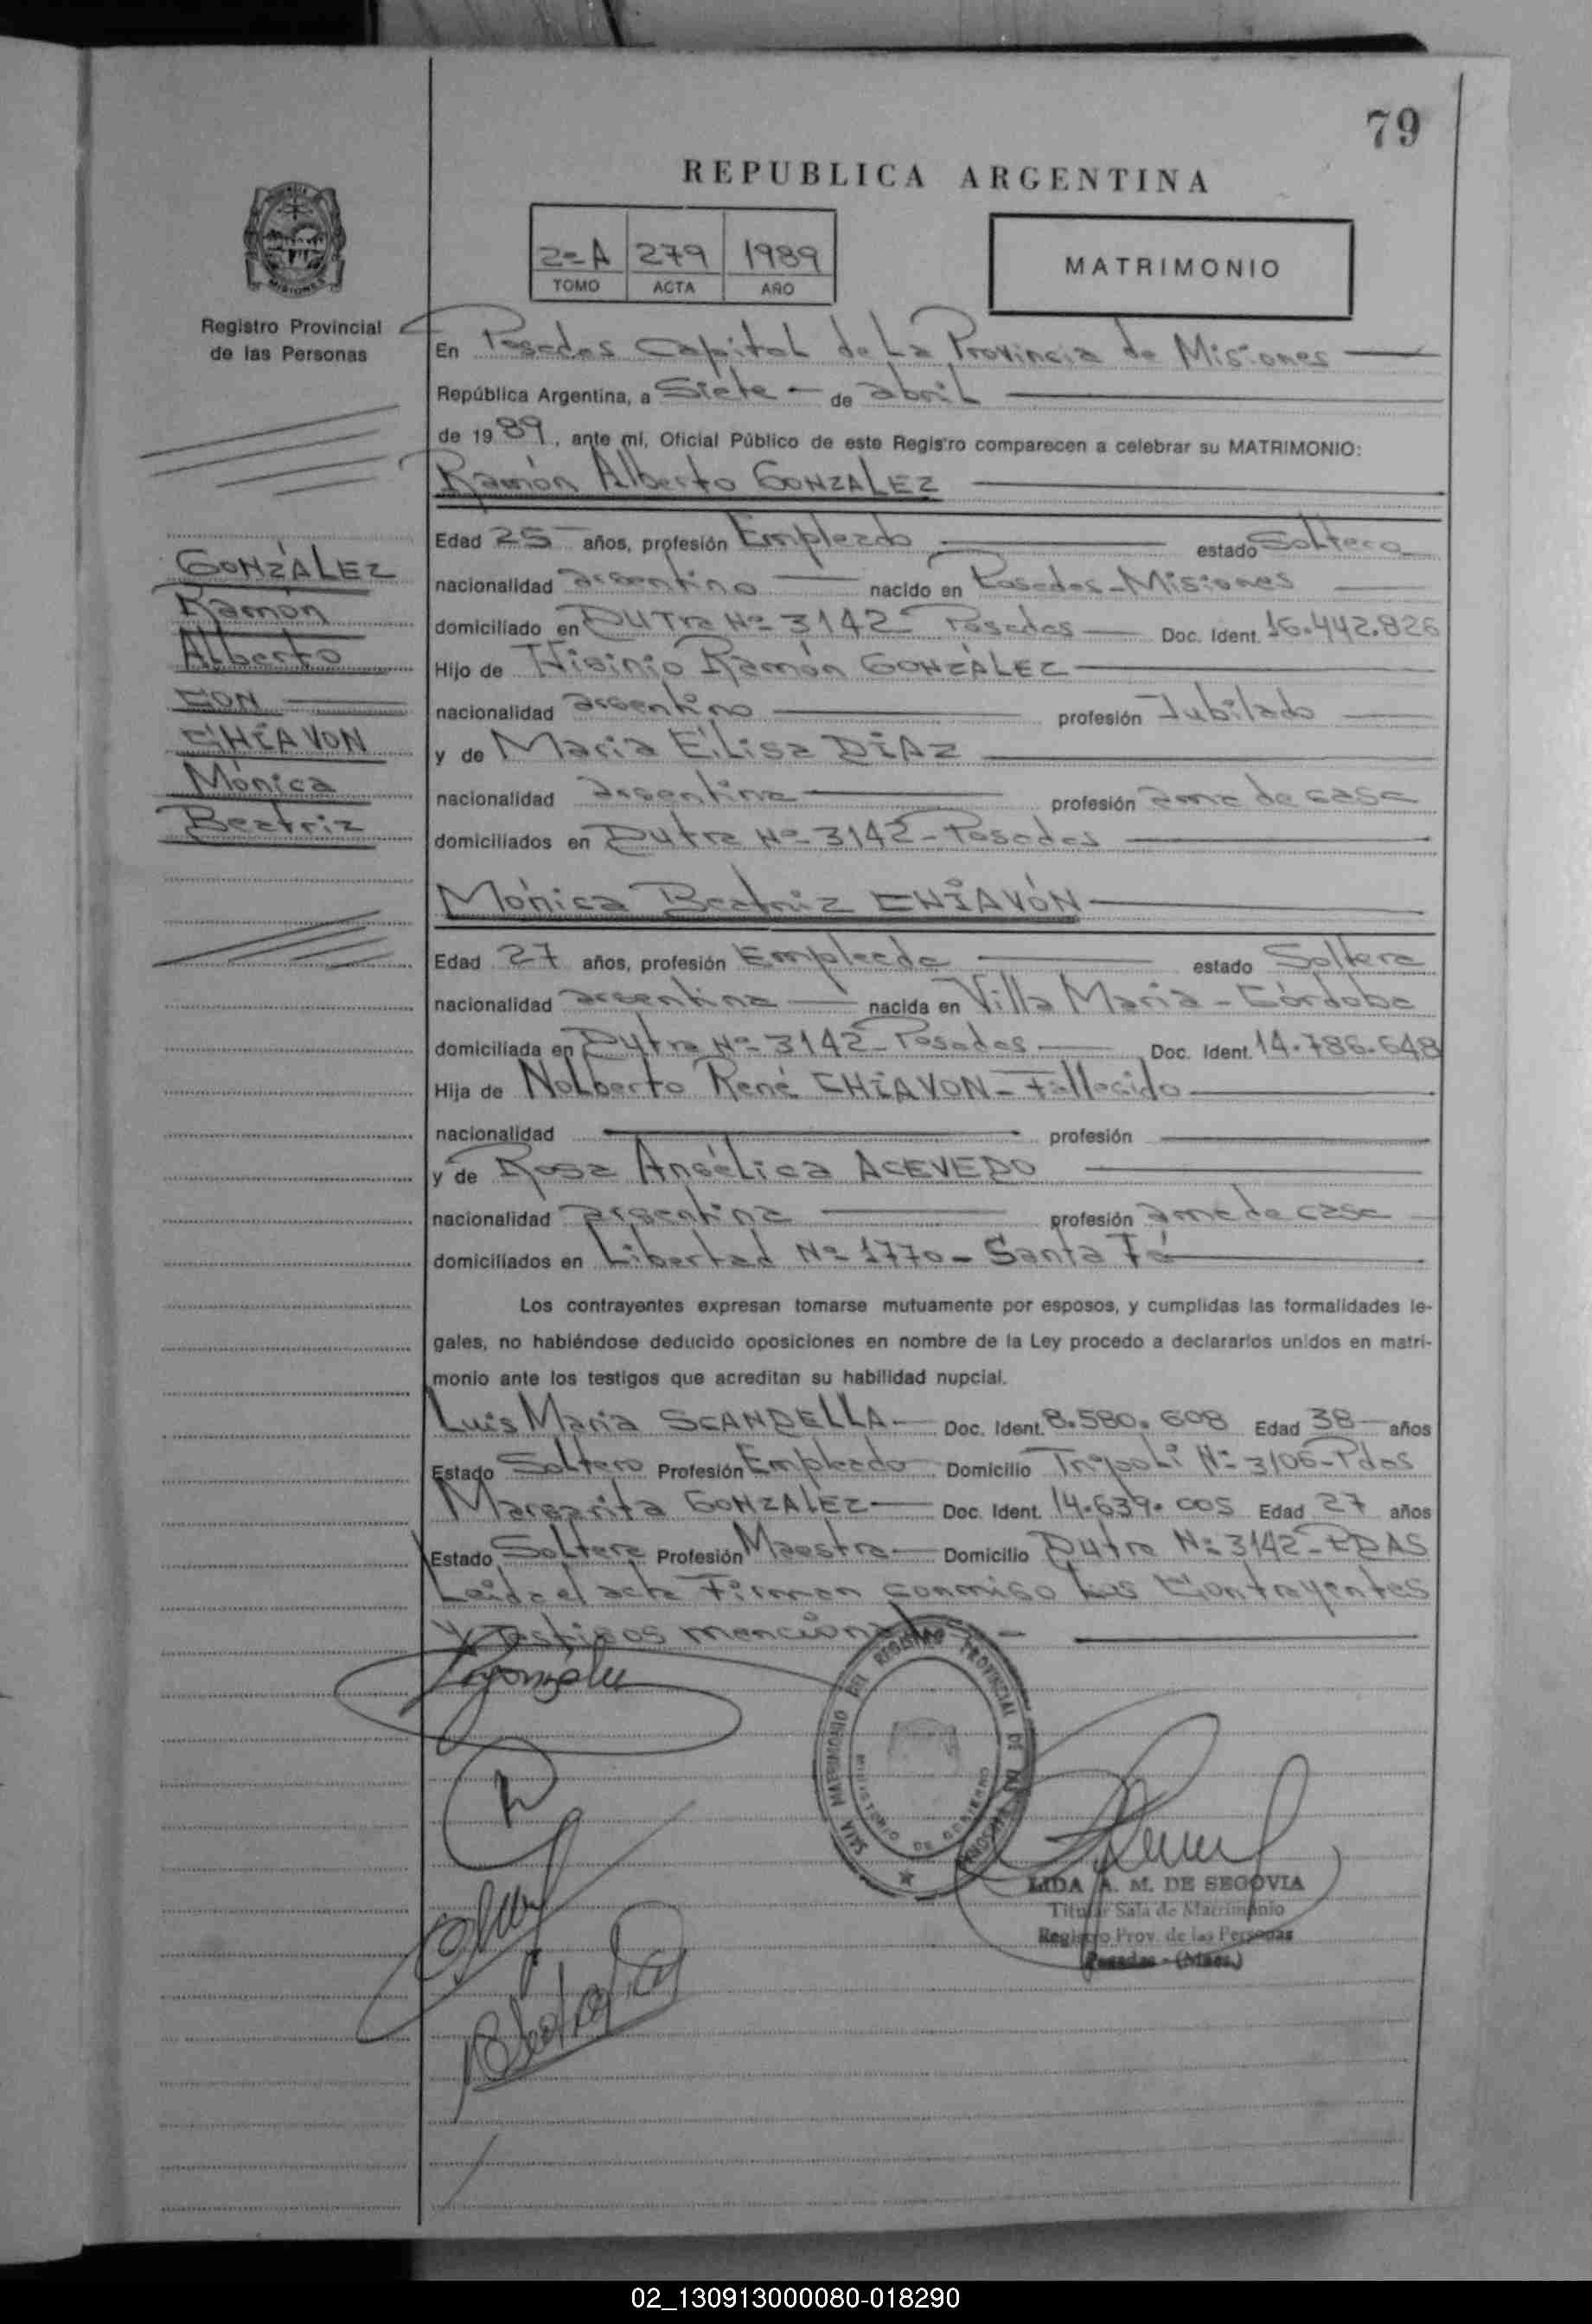 79
REPUBLICA ARGENTINA
2º A 279 1989
TOMO ACTA AÑO
MATRIMONIO
MISIONES
Registro Provincial
de las Personas
En Posadas Capital de La Provincia de Misiones
República Argentina, a Siete de abril
de 1989, ante mí, Oficial Público de este Registro comparecen a celebrar su MATRIMONIO:
Ramón Alberto GONZALEZ
GONZÁLEZ
Ramón
Alberto
CON
CHIAVON
Mónica
Beatriz
Edad 25 años, profesión Empleado estado Soltero
nacionalidad argentino nacido en Posadas-Misiones
domiciliado en DUTra Nº 3142 - Posadas Doc. Ident. 16.442.826
Hijo de Ramón GONZÁLEZ
nacionalidad argentino profesión Jubilado
y de María Elisa DIAZ
nacionalidad argentina profesión ama de casa
domiciliados en Dutra Nº 3142 - Posadas
Mónica Beatriz CHIAVÓN
Edad 27 años, profesión Empleada estado Soltera
nacionalidad argentina nacida en Villa María - Córdoba
domiciliada en Dutra Nº 3142 - Posadas Doc. Ident. 14.786.648
Hija de Nolberto René CHIAVON - Fallecido
nacionalidad profesión
y de Rosa Angélica ACEVEDO
nacionalidad argentina profesión ama de casa
domiciliados en Libertad Nº 1770 - Santa Fé
Los contrayentes expresan tomarse mutuamente por esposos, y cumplidas las formalidades le-
gales, no habiéndose deducido oposiciones en nombre de la Ley procedo a declararlos unidos en matri-
monio ante los testigos que acreditan su habilidad nupcial.
Luis María SCANDELLA Doc. Ident. 8.580.608 Edad 38 años
Estado Soltero Profesión Empleado Domicilio Trípoli Nº 3106 - Pdas
Margarita GONZALEZ Doc. Ident. 14.639.005 Edad 27 años
Estado Soltera Profesión Maestra Domicilio Dutra Nº 3142 - PDAS
Leida el acta Firman conmigo Los Contrayentes
y testigos mencionados.-
SALA MATRIMONIO DEL REGISTRO PROVINCIAL DE LAS PERSONAS
MINISTERIO DE GOBIERNO
LIDA A. M. DE SEGOVIA
Titular Sala de Matrimonio
Registro Prov. de las Personas
Posadas - (Mnes.)
02_130913000080-018290